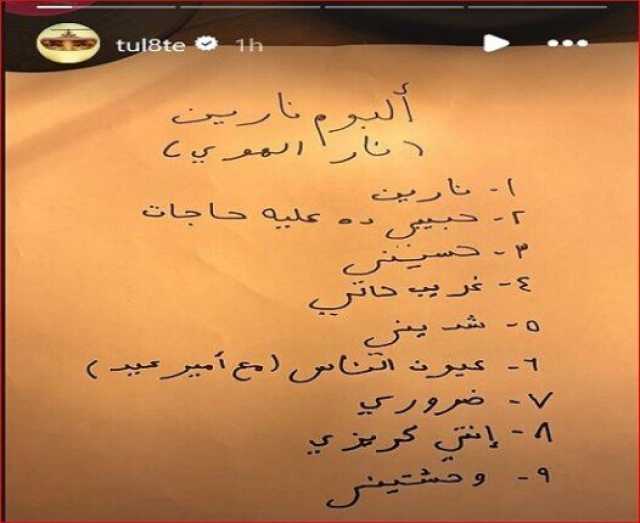 tul8te 1h
ألبوم نارين
(نار الهوي)
١- نارين
٢- حبيبي ده عليه حاجات
٣- حسيبني
٤- غريب حالي
٥- شديني
٦- عيون الناس (مع أمير عيد)
٧- ضروري
٨- إنتي كريزي
٩- وحشتيني